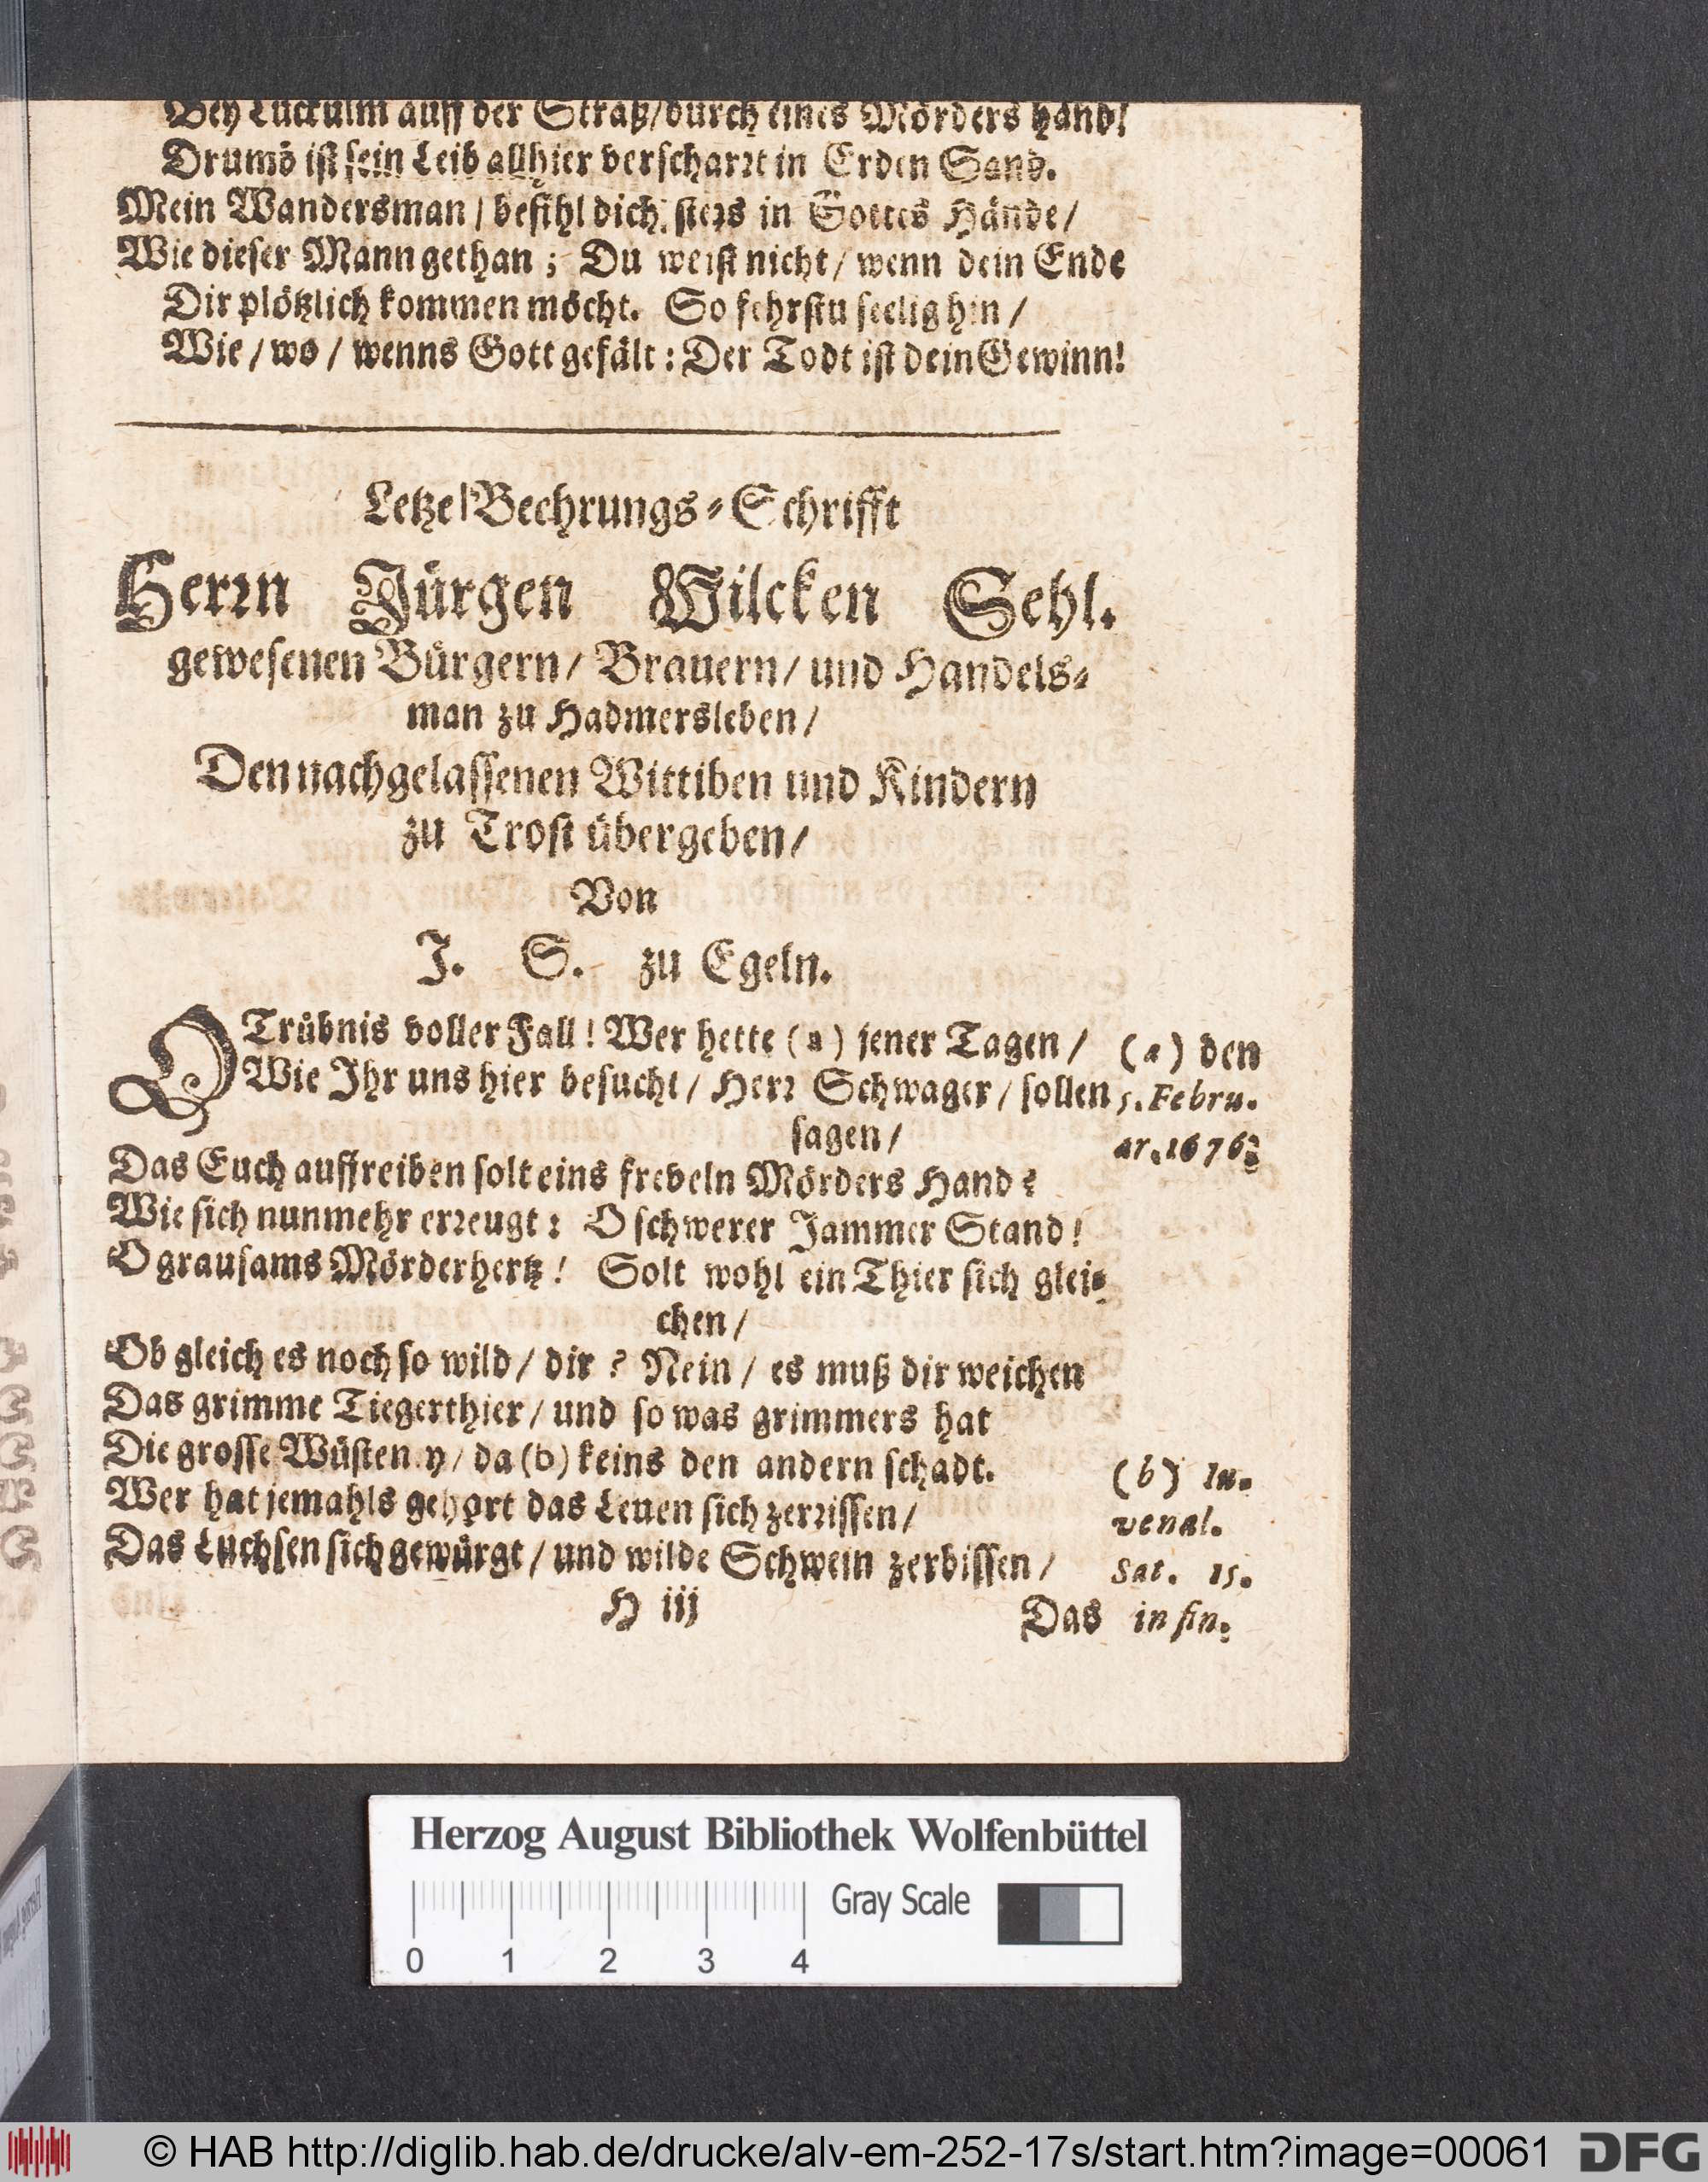 Bey Luckulm auff der Straß/durch eines Mörders hand!
Drumb ist sein Leib allhier verscharrt in Erden Sand.
Mein Wandersman / befihl dich stets in Gottes Hände/
Wie dieser Mann gethan ; Du weist nicht/ wenn dein Ende
Dir plötzlich kommen möcht. So fehrstu seelig hin /
Wie / wo / wenns Gott gefält : Der Todt ist dein Gewinn!
Letze Beehrungs-Schrifft
Herrn Jürgen Wilcken Sehl.
gewesenen Bürgern/ Brauern/ und Handels-
man zu Hadmersleben /
Den nachgelassenen Wittiben und Kindern
zu Trost übergeben/
Von
J. S. zu Egeln.
O Trübnis voller Fall! Wer hette (a) jener Tagen / (a) den
Wie Ihr uns hier besucht/ Herr Schwager / sollen 5. Febru.
sagen / ar. 1676.
Das Euch auffreiben solt eins freveln Mörders Hand?
Wie sich nunmehr erreugt: O schwerer Jammer Stand!
O grausams Mörderhertz! Solt wohl ein Thier sich glei-
chen /
Ob gleich es noch so wild / dir ? Nein / es muß dir weichen
Das grimme Tiegerthier / und so was grimmers hat
Die grosse Wüsteney/ da (b) keins den andern schadt. (b) Iu-
Wer hat jemahls gehört das Leuen sich zerrissen / venal.
Das Luchsen sich gewürgt / und wilde Schwein zerbissen / Sat. 15.
H iij Das in fin.
Herzog August Bibliothek Wolfenbüttel
Gray Scale
0 1 2 3 4
© HAB http://diglib.hab.de/drucke/alv-em-252-17s/start.htm?image=00061 DFG